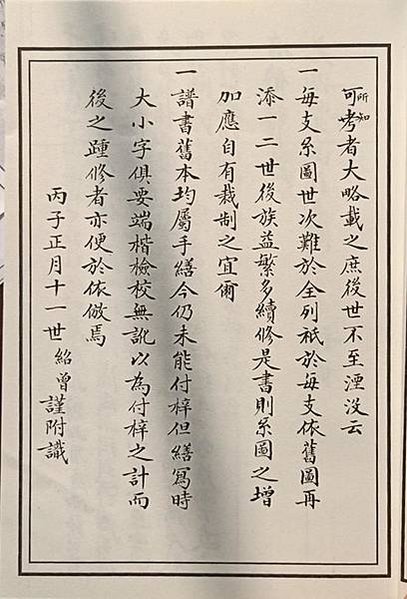 所知可考者大略載之庶後世不至湮没云
一每支系圖世次難於全列祇於每支依舊圖再
添一二世後族益繁多續修是書則系圖之增
加應自有裁制之宜爾
一譜書舊本均屬手繕今仍未能付梓但繕寫時
大小字俱要端楷檢校無訛以為付梓之計而
後之踵修者亦便於依倣焉
丙子正月十一世紹曾謹附識